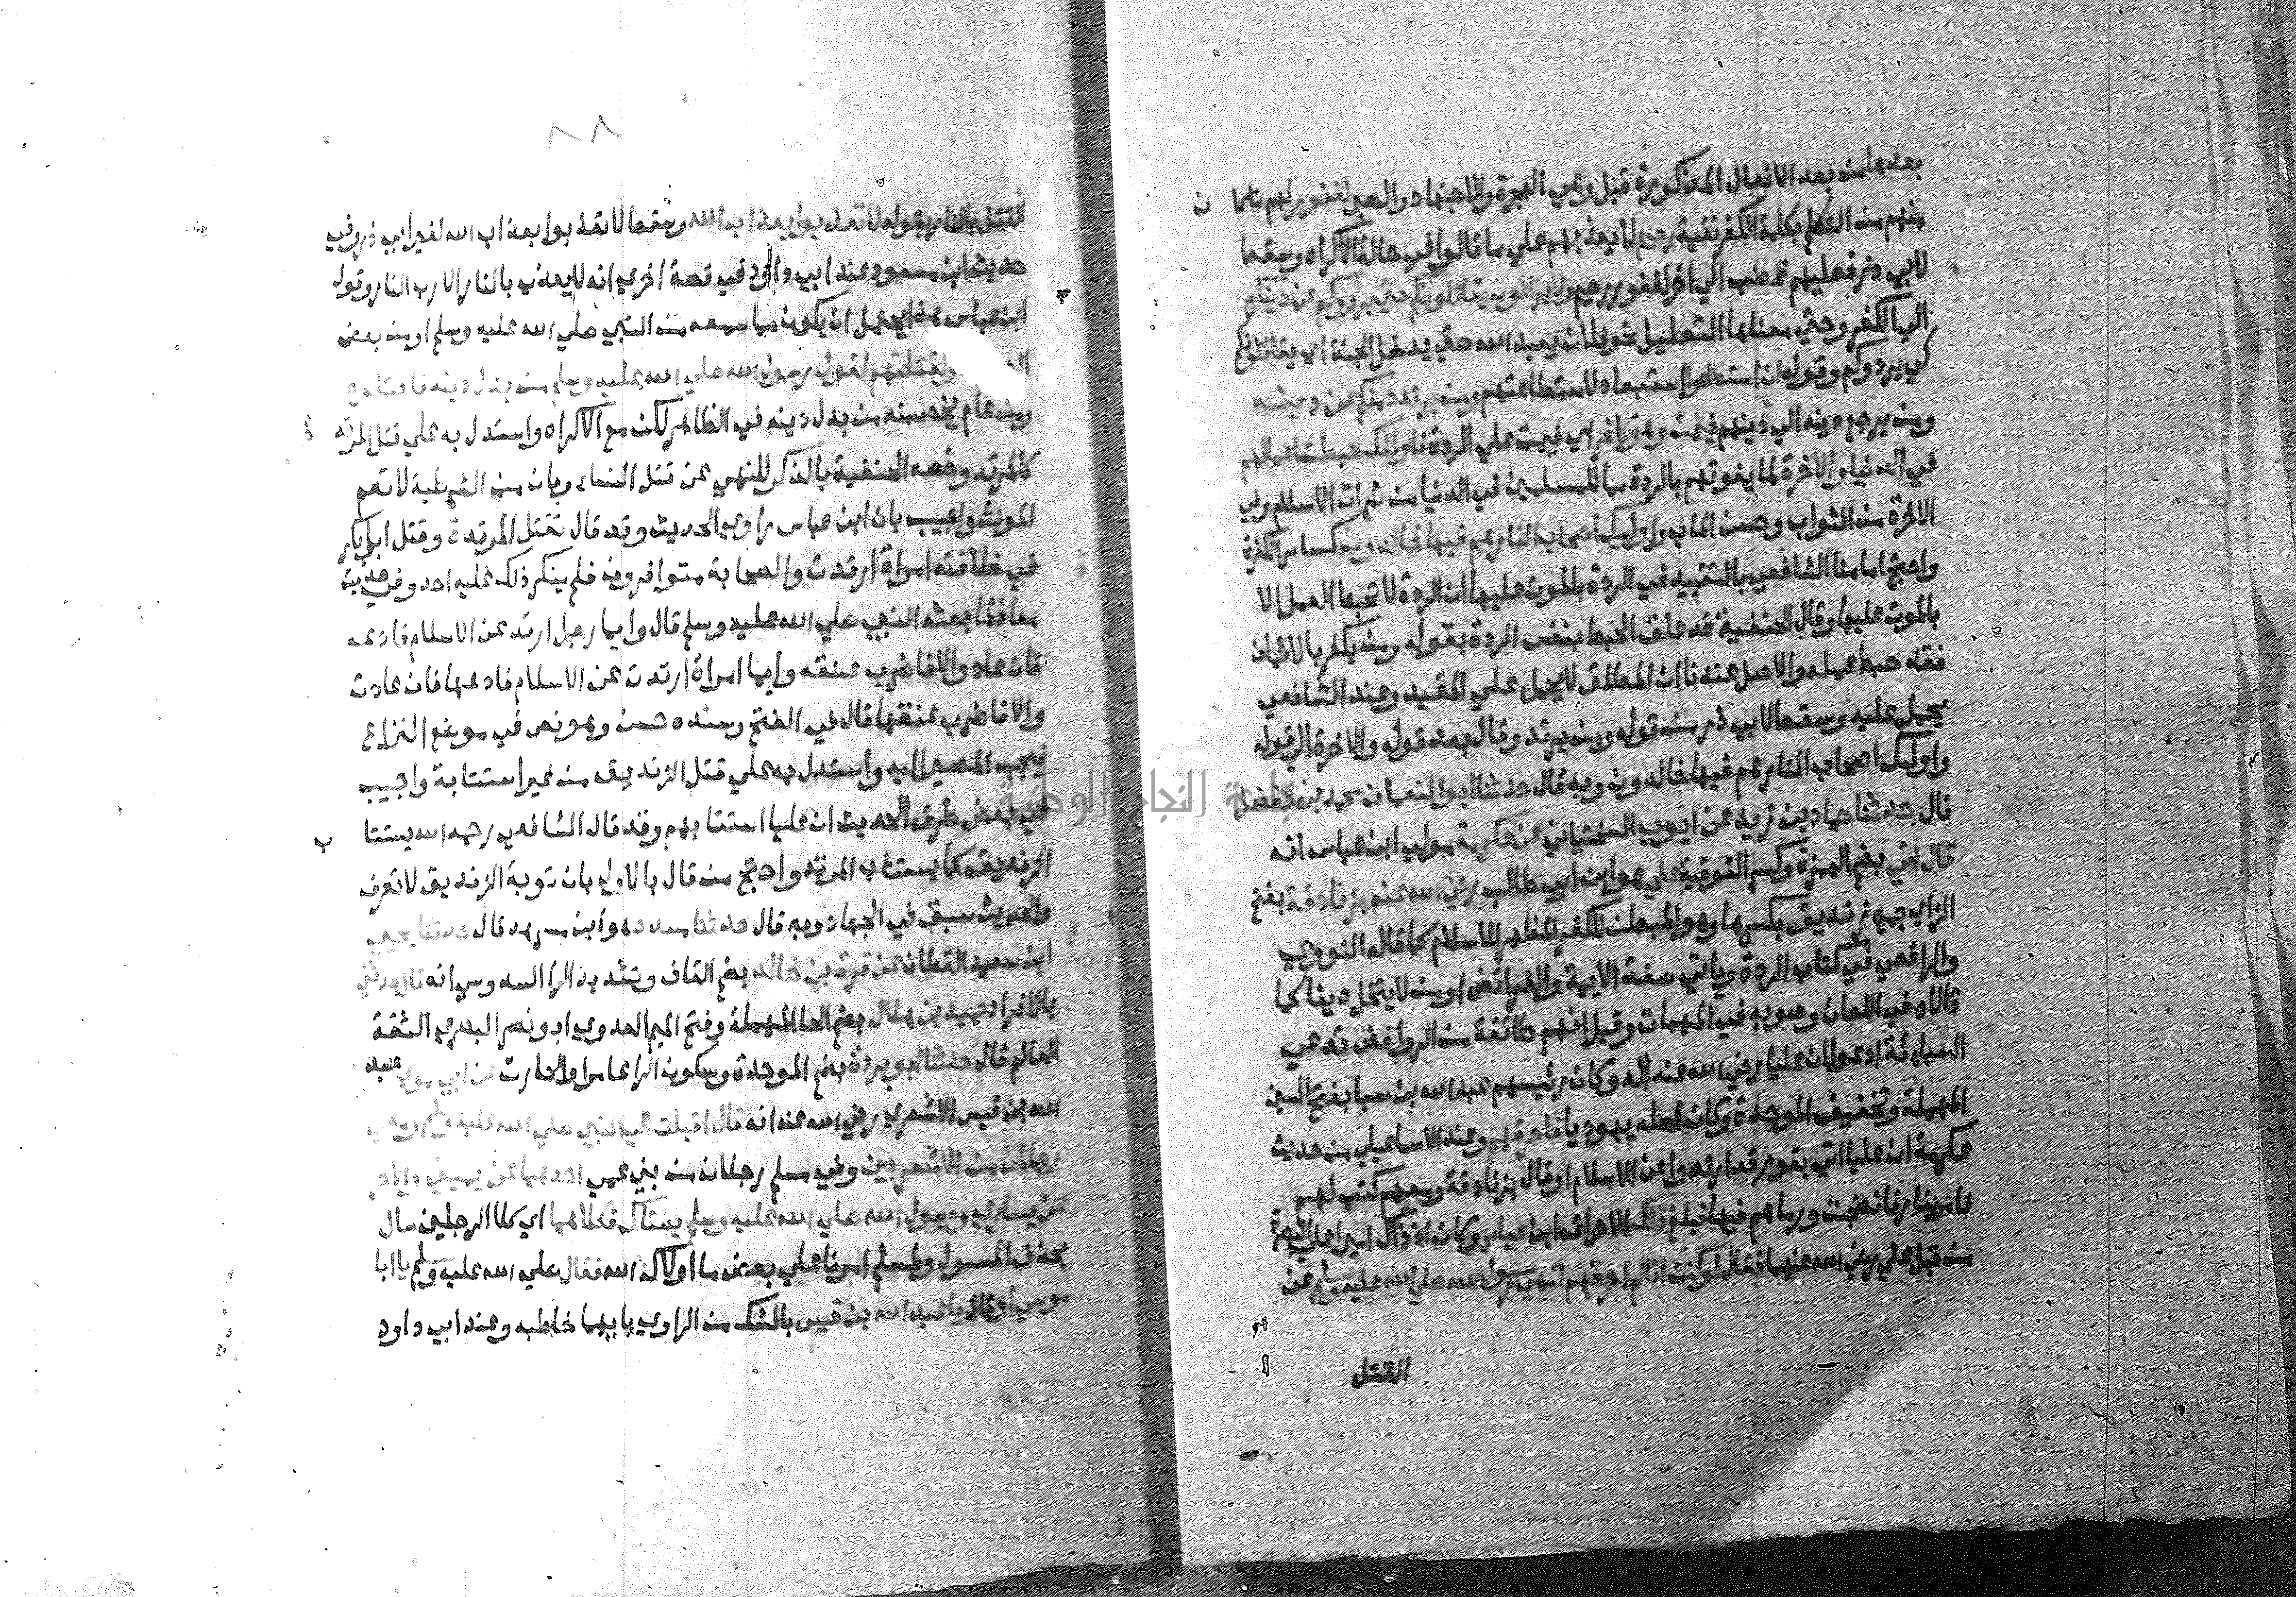 بعدها من بعد الافعال المذكورة قبل وهي الهجرة والاجتهاد والصبر لغفور لهم عما ن
منهم من التكلم بكلمة الكفر تقية رحيم لا يعذبهم علي ما قالوا في حالة الاكراه وسقط
لابي ذر فعليهم غضب الي اخر لغفور رحيم ولا يزالون يقاتلونكم حتي يردوكم عن دينكم
الي الكفر وحتي معناها التعليل نحو فلان يعبد الله حتي يدخل الجنة اي يقاتلونكم
كي يردوكم وقوله ان استطاعوا استبعاد لاستطاعتهم ومن يرتدد منكم عن دينه
ومن يرجع دينه الي دينهم فيمت وهو كافر اي فيمت علي الردة فاوليك حبطت اعمالهم
في الدنيا والاخرة لما يفوتهم بالردة مما للمسلمين في الدنيا من ثمرات الاسلام وفي
الاخرة من الثواب وحسن الماب واوليك اصحاب النار هم فيها خالدون كساير الكفرة
واحتج امامنا الشافعي بالتقييد في الردة بالموت عليها ان الردة لا تحبط العمل الا
بالموت عليها وقال الحنفية قد علق الحبط بنفس الردة بقوله ومن يكفر بالايمان
فقد حبط عمله والاصل عندنا ان المطلق لا يحمل علي المقيد وعند الشافعي
يحمل عليه وسقط لابي ذر من قوله ومن يرتد وقال بعد قوله والاخرة الي قوله
واوليك اصحاب النار هم فيها خالدون وبه قال حدثنا ابو النعمان محمد بن الفضل
قال حدثنا حماد بن زيد عن ايوب السختياني عن عكرمة مولي ابن عباس انه
قال اتي بضم الهمزة وكسر الفوقية علي هو ابن ابي طالب رضي الله عنه بزنادقة بفتح
الزاي جمع زنديق بكسرها وهو المبطن للكفر المظهر للاسلام كما قاله النووي
والرافعي في كتاب الردة وبابي صفة الايمة والفرائض او من لا ينتحل دينا كما
قالاه في اللعان وصوبه في المهمات وقيل انهم طائفة من الروافض تدعي
السبائية ادعوا ان عليا رضي الله عنه اله وكان رئيسهم عبد الله بن سبا بفتح السين
المهملة وتخفيف الموحدة وكان اصله يهوديا فاحرقهم وعند الاسماعيلي من حديث
عكرمة ان عليا اتي بقوم قد ارتدوا عن الاسلام او قال بزنادقة ومعهم كتب لهم
فامر بنار فانضجت ورماهم فيها فبلغ ذلك الاحراق ابن عباس وكان اذ ذاك اميرا علي البصرة
من قبل علي رضي الله عنهما فقال لو كنت انا لم احرقهم لنهي رسول الله صلي الله عليه وسلم عن
القتل
٨٨
القتل بالنار بقوله لا تعذبوا بعذاب الله وسقط لا تعذبوا بعذاب الله لغير ابي ذر وفي
حديث ابن مسعود عند ابي داود في قصة اخري انه لا يعذب بالنار الا رب النار وقول
ابن عباس هذا يحتمل ان يكون مما سمعه من النبي صلي الله عليه وسلم او من بعض
ولقتلتهم لقول رسول الله صلي الله عليه وسلم من بدل دينه فاقتلوه
ومن عام يخص منه من بدل دينه في الظاهر لكن مع الاكراه واستدل به علي قتل المرتدة
كالمرتد وخصه الحنفية بالذكر للنهي عن قتل النساء وبان من الشرطية لا تعم
المونث واجيب بان ابن عباس راوي الحديث وقد قال تقتل المرتدة وقتل ابو بكر
في خلافته امراة ارتدت والصحابة متوافرون فلم ينكر ذلك عليه احد وفي حديث
معاذ لما بعثه النبي صلي الله عليه وسلم قال وايما رجل ارتد عن الاسلام فادعه
فان عاد والا فاضرب عنقه وايما امراة ارتدت عن الاسلام فادعها فان عادت
والا فاضرب عنقها قال في الفتح وسنده حسن وهو نص في موضع النزاع
فيجب المصير اليه واستدل به علي قتل الزنديق من غير استتابة واجيب
في بعض طرق الحديث ان عليا استتابهم وقد قال الشافعي رحمه الله يستتا ب
الزنديق كما يستتاب المرتد واحتج من قال بالاول بان توبة الزنديق لا تعرف
والحديث سبق في الجهاد وبه قال حدثنا مسدد هو ابن مسرهد قال حدثنا يحيي
ابن سعيد القطان عن قرة بن خالد بضم القاف وتشديد الرا السدوسي انه قال حدثني
بالافراد حميد بن هلال بضم الحا المهملة وفتح الميم العدوي ابو نصر البصري الثقة
العالم قال حدثنا ابو بردة بضم الموحدة وسكون الرا عامر او الحارث عن ابي موسي عبد
الله بن قيس الاشعري رضي الله عنه انه قال اقبلت الي النبي صلي الله عليه وسلم ومعي
رجلان من الاشعريين وفي مسلم رجلان من بني عمي احدهما عن يميني والاخر
عن يساري ورسول الله صلي الله عليه وسلم يستاك فكلاهما اي كلا الرجلين سال
بحذف المسول ولمسلم امرنا علي بعض ما اولاك الله فقال صلي الله عليه وسلم يا ابا
موسي او قال يا عبد الله بن قيس بالشك من الراوي بايهما خاطبه وعند ابي داود
جامعة النجاح الوطنية